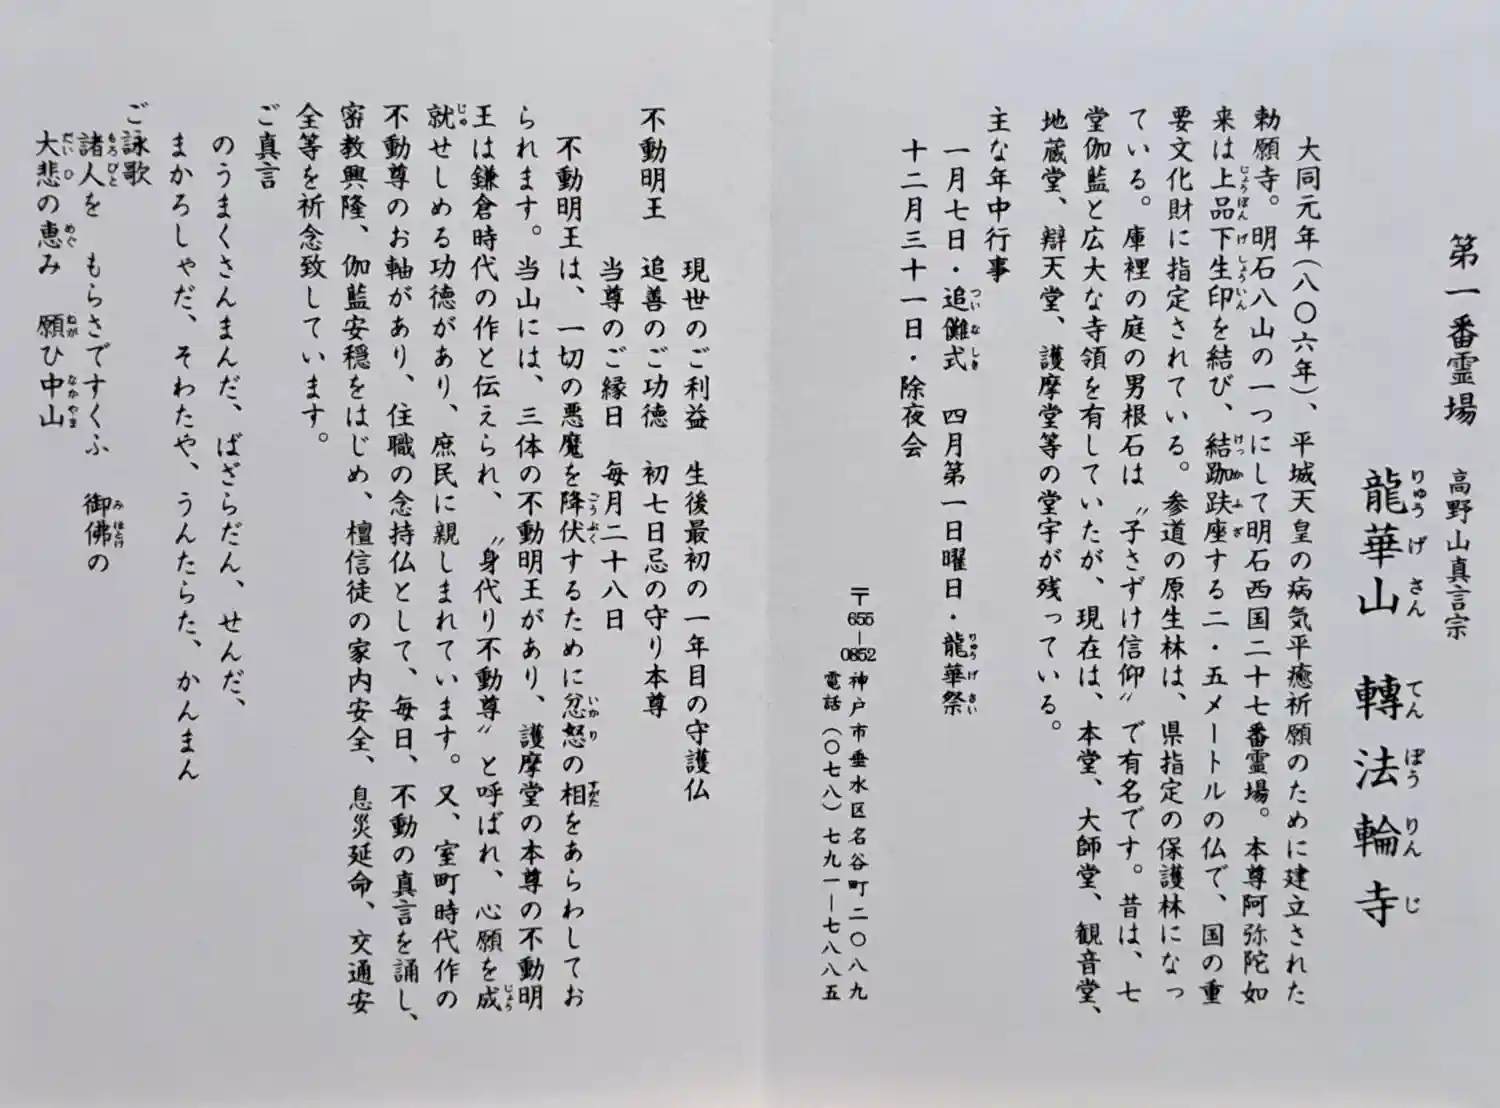 第一番霊場 高野山真言宗
龍華山 轉法輪寺
りゅうげさん てんぽうりんじ
大同元年(八〇六年)、平城天皇の病気平癒祈願のために建立された
勅願寺。明石八山の一つにして明石西国二十七番霊場。本尊阿弥陀如
来は上品下生印を結び、結跏趺座する二・五メートルの仏で、国の重
じょうぼん げしょういん けっかふざ
要文化財に指定されている。参道の原生林は、県指定の保護林になっ
ている。庫裡の庭の男根石は〝子さずけ信仰〟で有名です。昔は、七
堂伽藍と広大な寺領を有していたが、現在は、本堂、大師堂、観音堂、
地蔵堂、辯天堂、護摩堂等の堂宇が残っている。
主な年中行事
一月七日・追儺式 四月第一日曜日・龍華祭
ついなしき りゅうげさい
十二月三十一日・除夜会
〒655-0852 神戸市垂水区名谷町二〇八九
電話(〇七八)七九一―七八八五
現世のご利益 生後最初の一年目の守護仏
不動明王 追善のご功徳 初七日忌の守り本尊
当尊のご縁日 毎月二十八日
不動明王は、一切の悪魔を降伏するために忿怒の相をあらわしてお
ごうぶく いかり すがた
られます。当山には、三体の不動明王があり、護摩堂の本尊の不動明
王は鎌倉時代の作と伝えられ、〝身代り不動尊〟と呼ばれ、心願を成
じょう
就せしめる功徳があり、庶民に親しまれています。又、室町時代作の
じゅ
不動尊のお軸があり、住職の念持仏として、毎日、不動の真言を誦し、
密教興隆、伽藍安穏をはじめ、檀信徒の家内安全、息災延命、交通安
全等を祈念致しています。
ご真言
のうまくさんまんだ、ばざらだん、せんだ、
まかろしゃだ、そわたや、うんたらた、かんまん
ご詠歌
諸人を もらさですくふ 御佛の
もろびと みほとけ
大悲の恵み 願ひ中山
だいひ めぐ ねが なかやま